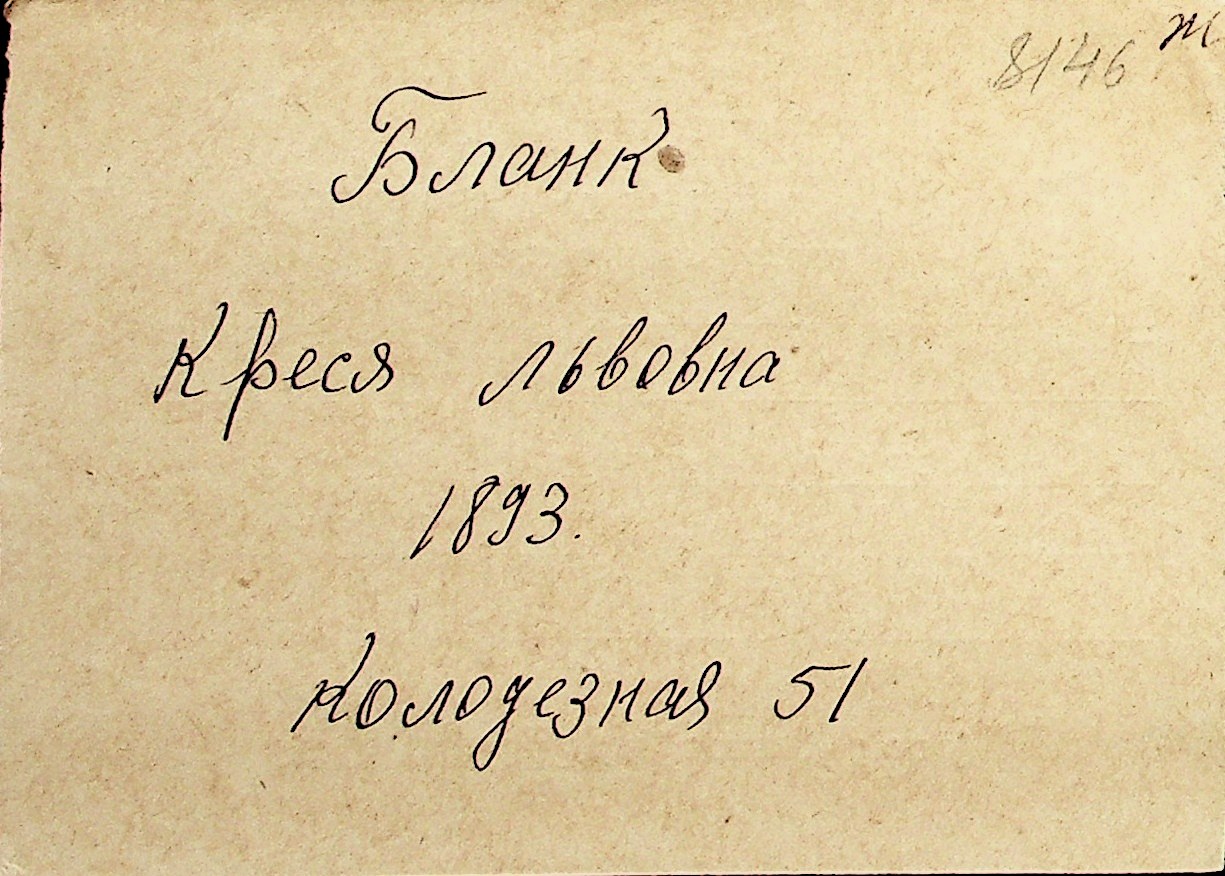 8146 ж
Бланк
Креся львовна
1893.
Колодезная 51